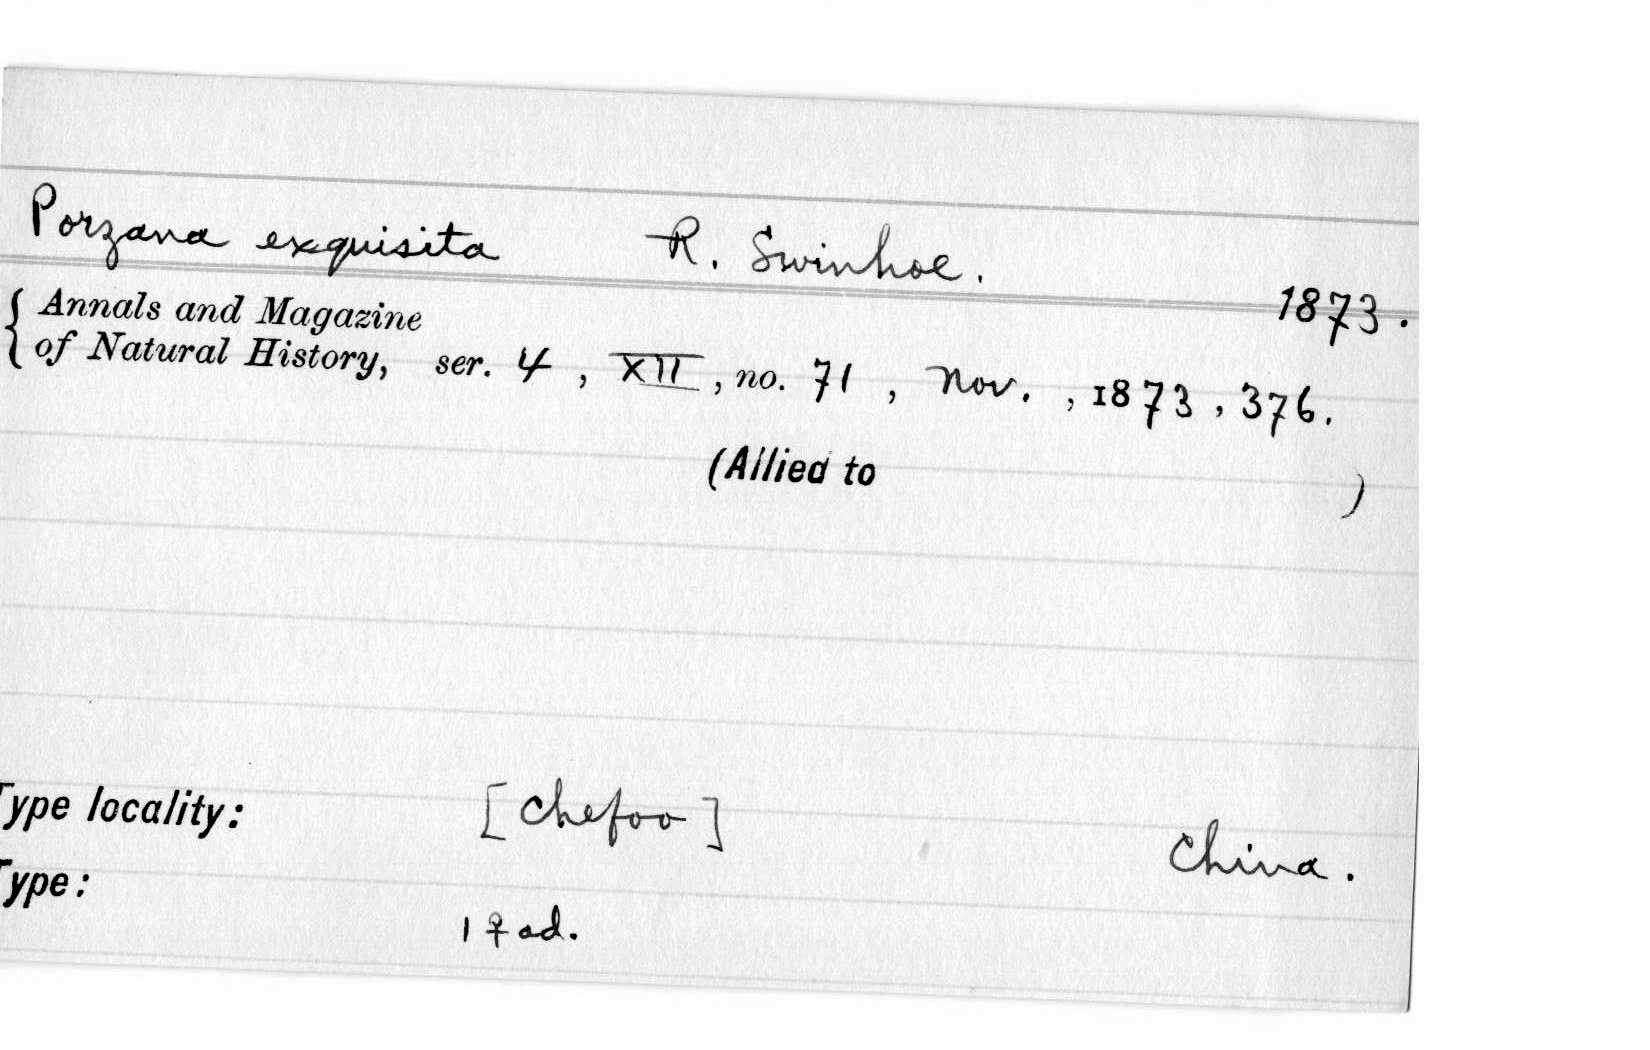 Porzana exquisita R. Swinhoe.
1873.
{ Annals and Magazine
of Natural History, ser. 4, XII, no. 71, Nov., 1873, 376.
(Allied to )
Type locality: [Chefoo] China.
Type:
1 ♀ ad.